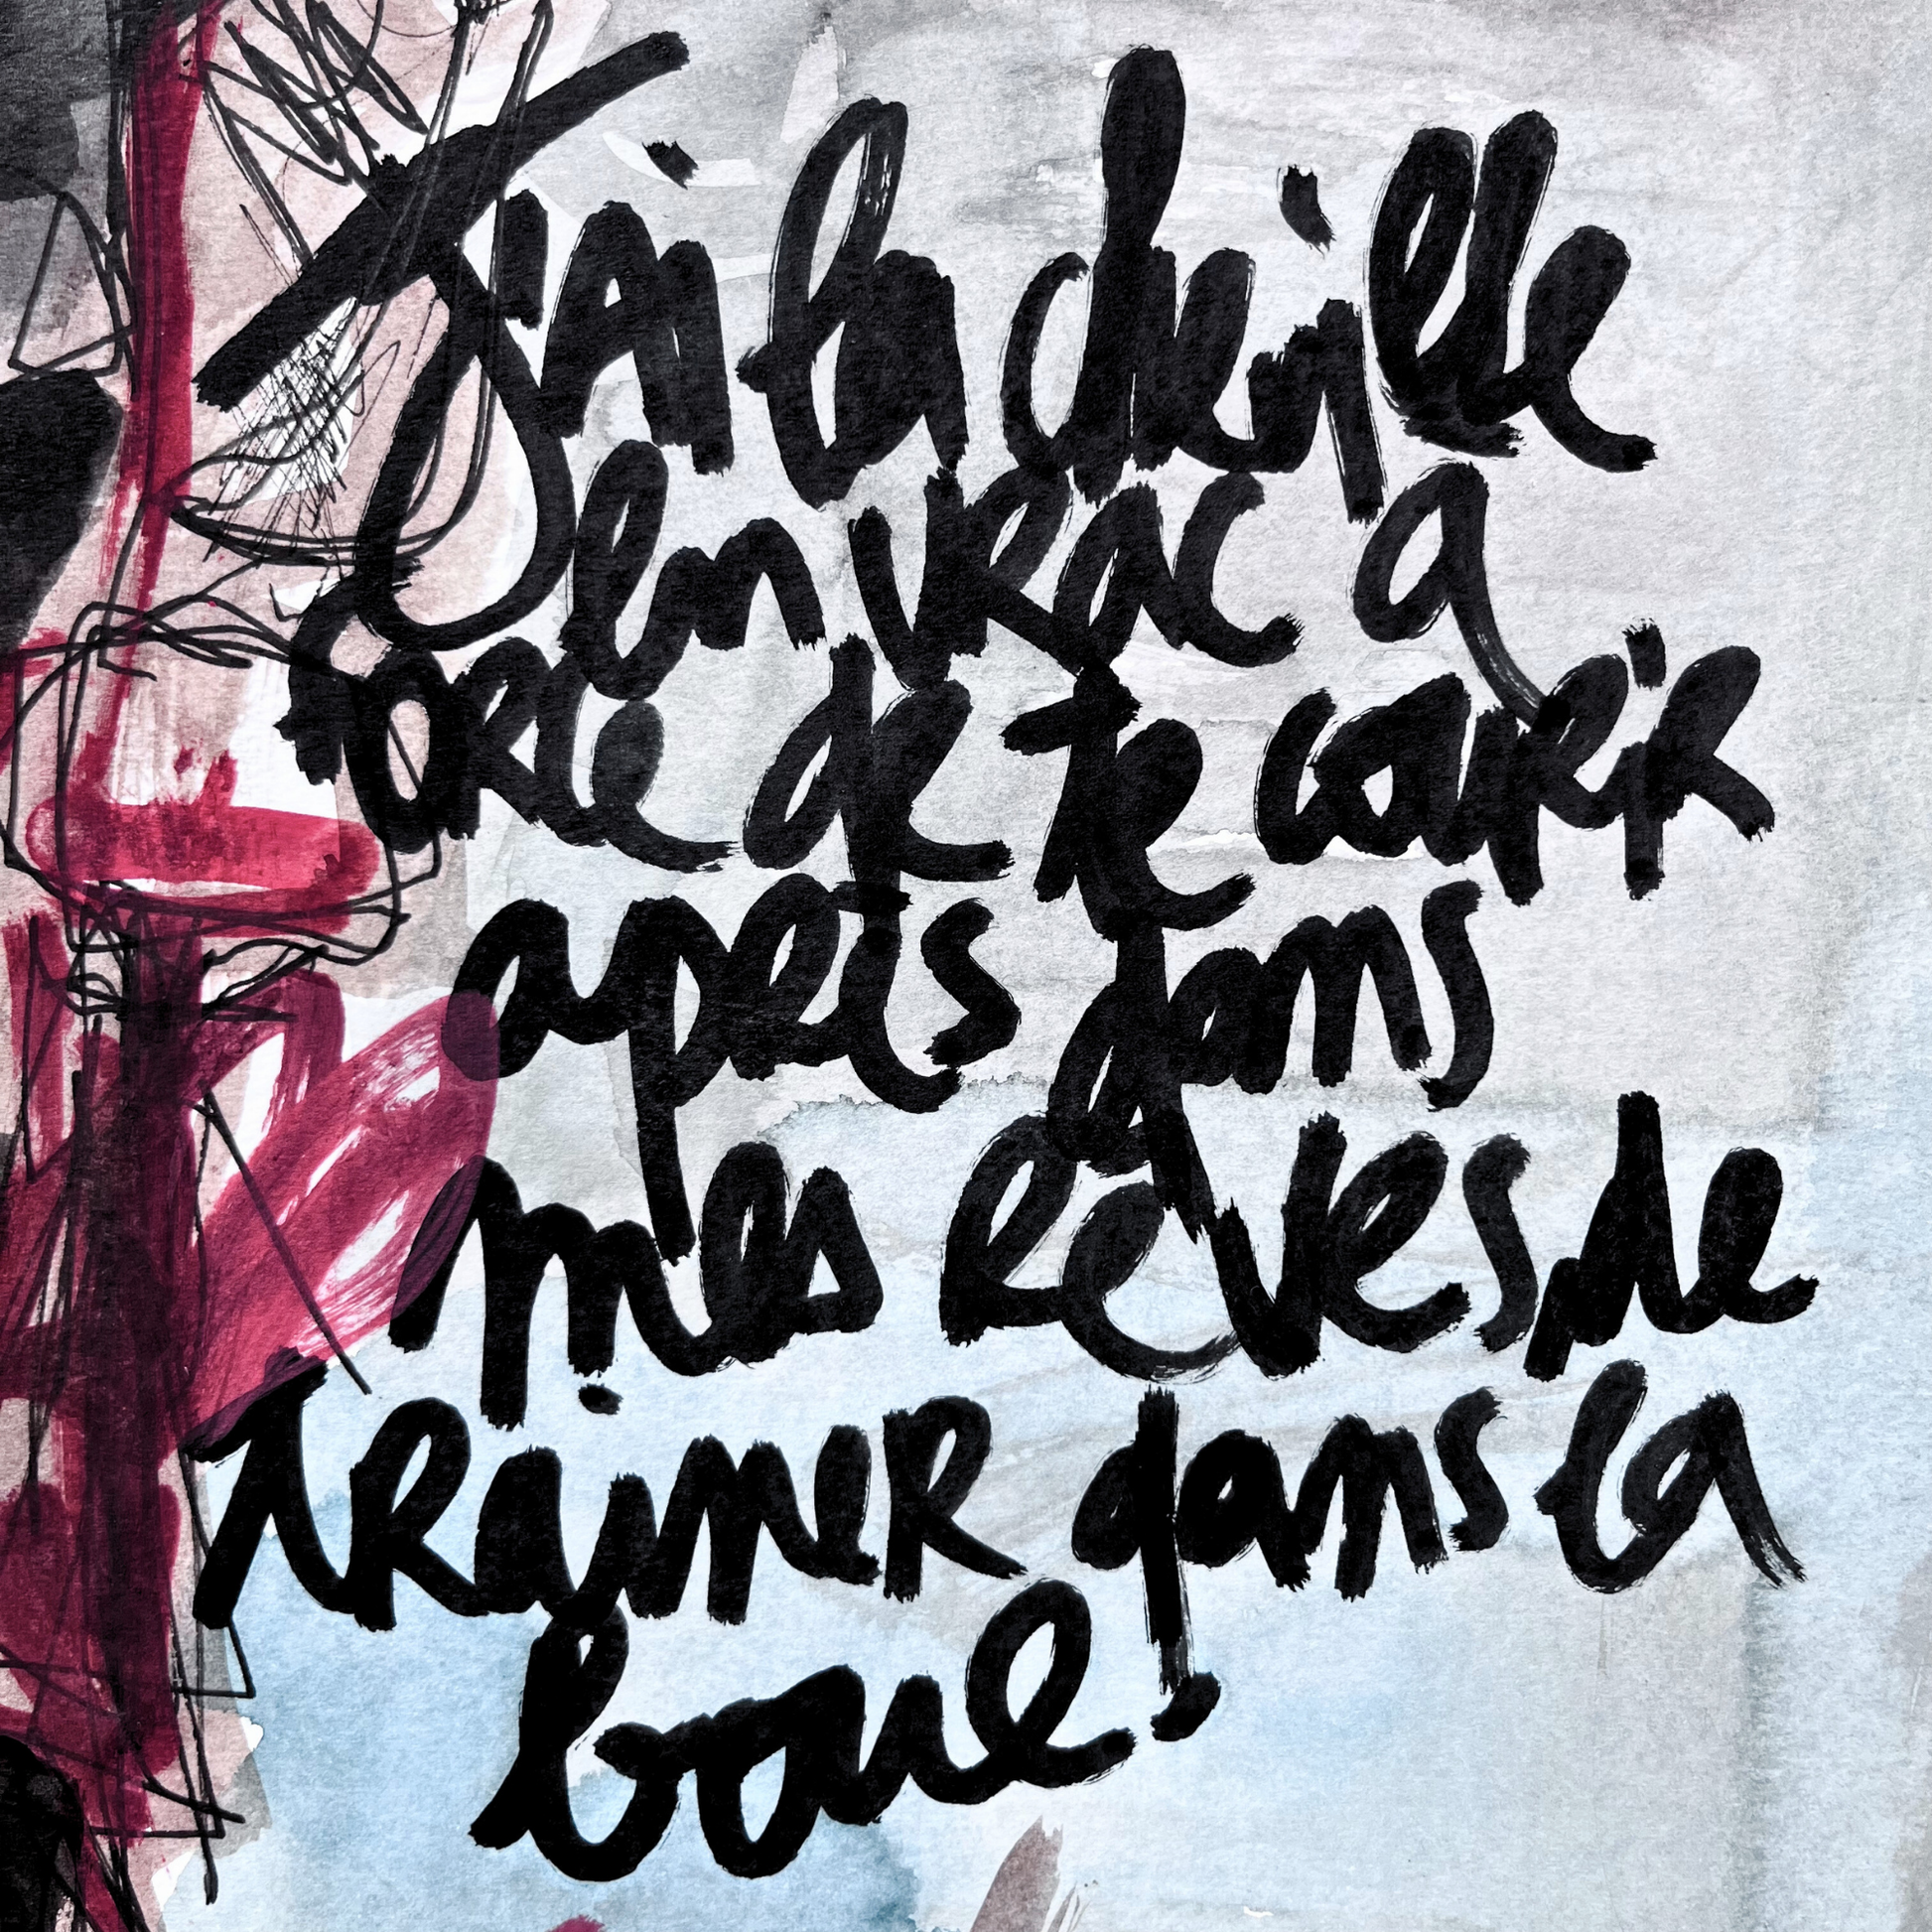 J'ai la cheville
en vrac a
force de te courir
après dans
mes rêves, de
traîner dans la
boue.